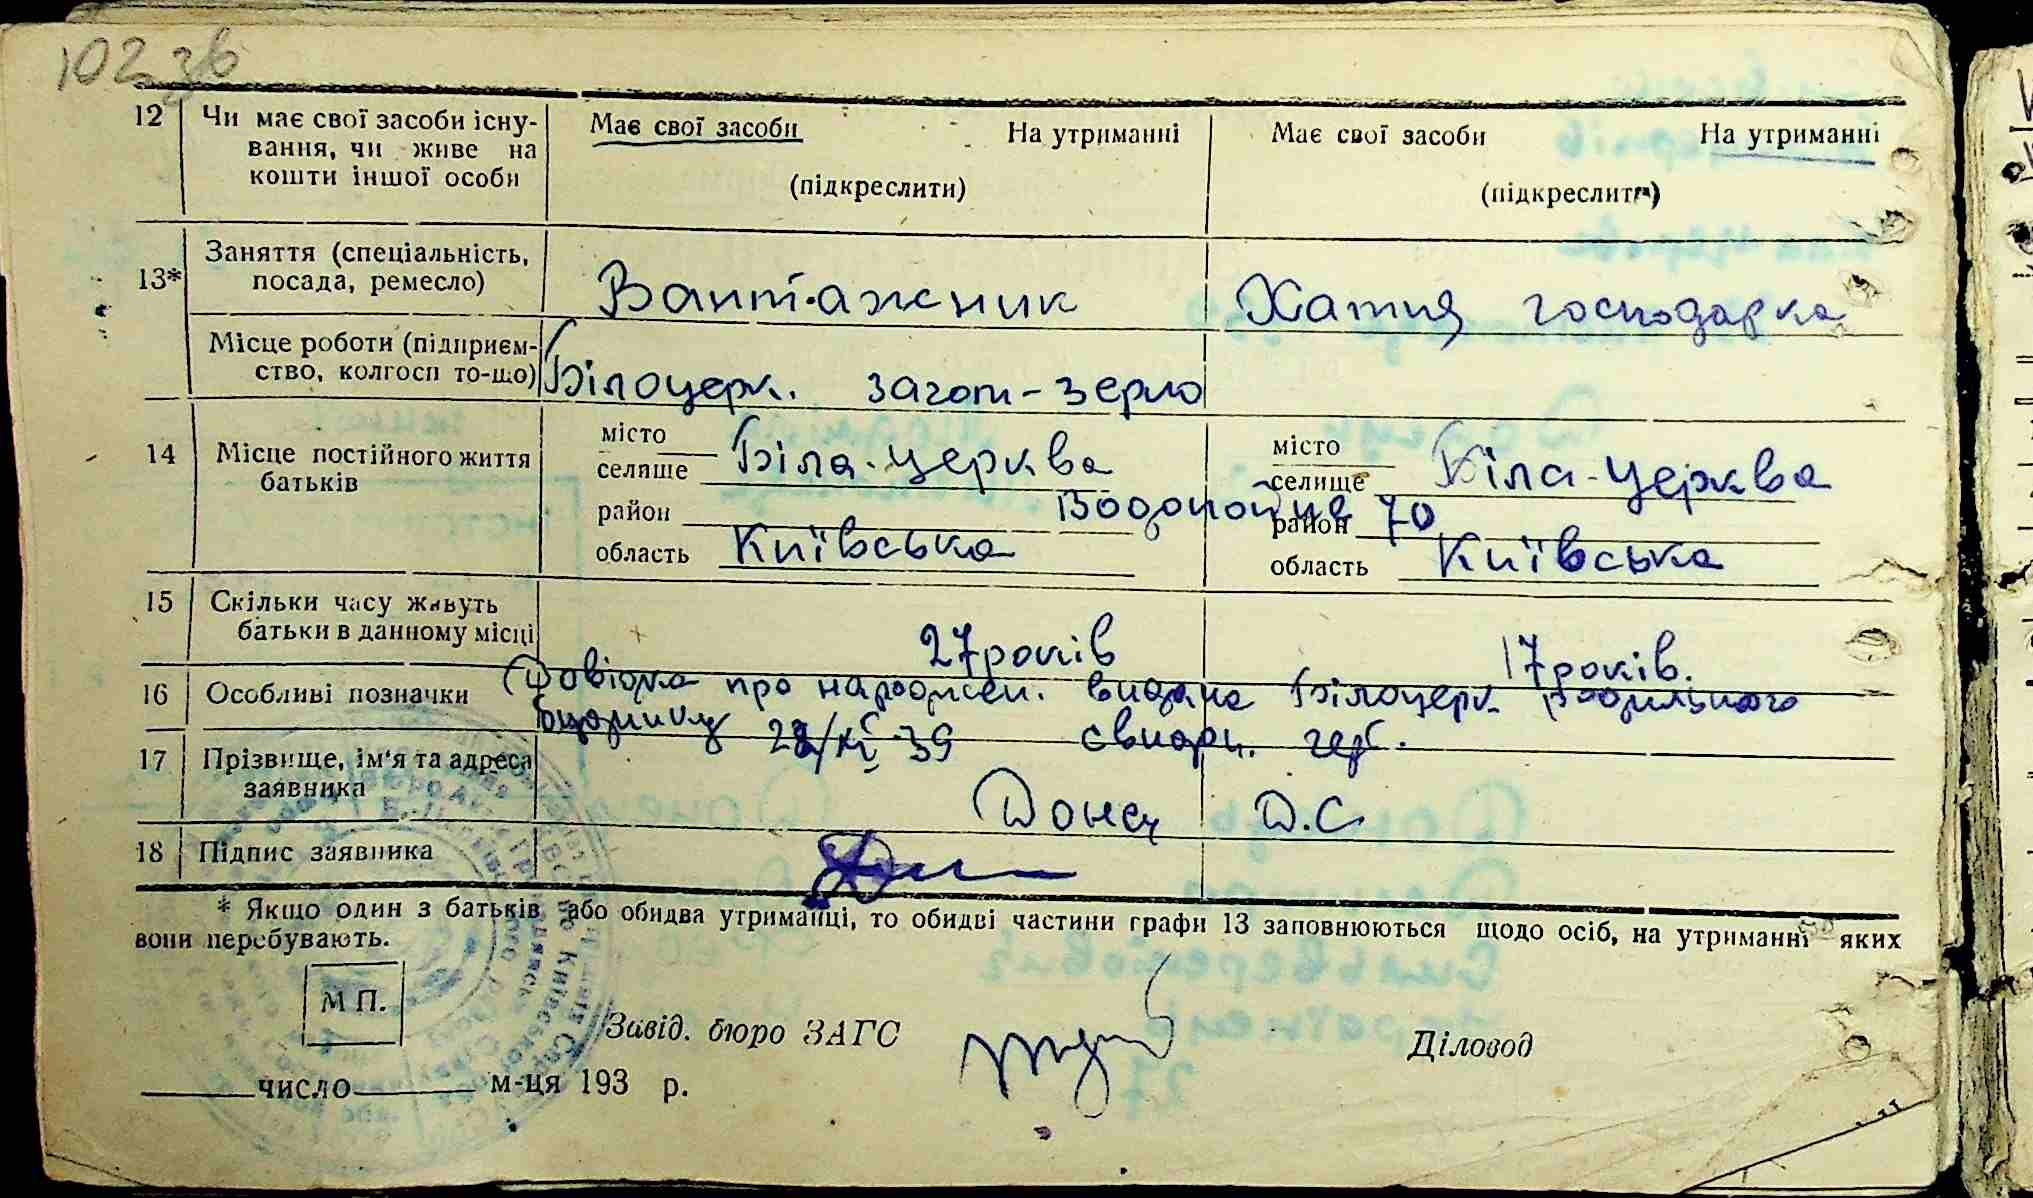 102 зв
12 Чи має свої засоби існу- Має свої засоби На утриманні Має свої засоби На утриманні
вання, чи живе на
кошти іншої особи (підкреслити) (підкреслити)
13* Заняття (спеціальність,
посада, ремесло) Вантажник Хатня господарка
Місце роботи (підприєм-
ство, колгосп то-що) Білоцерк. загот-зерно
14 Місце постійного життя
батьків
місто
селище Біла-церква
місто
селище Біла-церква
район Водопойна 70
район
область Київська область Київська
15 Скільки часу живуть
батьки в данному місці 27 років 17 років.
16 Особливі позначки Довідка про народжен. видана Білоцерк родильного
будинку 39
17 Прізвище, ім'я та адреса
заявника Донец Д.С.
18 Підпис заявника
* Якщо один з батьків або обидва утриманці, то обидві частини графи 13 заповнюються щодо осіб, на утриманні яких
вони перебувають.
М П.
Завід. бюро ЗАГС Діловод
число м-ця 193 р.